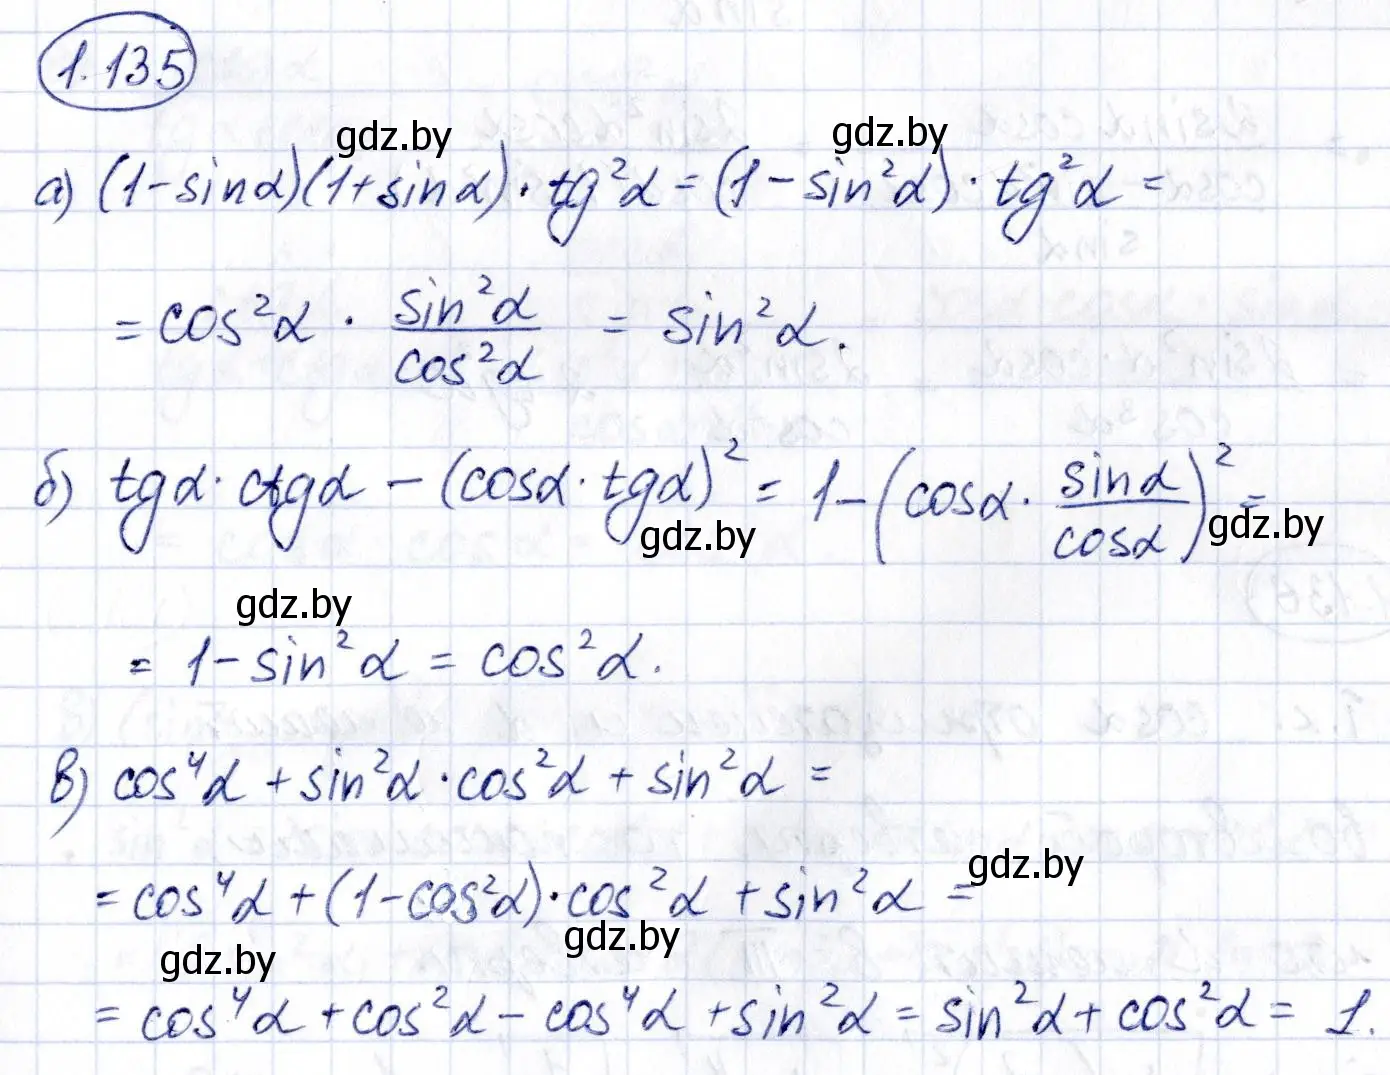 1.135
gdz.by gdz.by
а) (1-sinα)(1+sinα)·tg²α=(1-sin²α)·tg²α=
=cos²α · sin²α/cos²α = sin²α.
б) tgα·ctgα-(cosα·tgα)²=1-(cosα·sinα/cosα)²=
gdz.by gdz.by
gdz.by
=1-sin²α=cos²α.
в) cos⁴α+sin²α·cos²α+sin²α=
gdz.by
=cos⁴α+(1-cos²α)·cos²α+sin²α=
gdz.by gdz.by
=cos⁴α+cos²α-cos⁴α+sin²α=sin²α+cos²α=1.